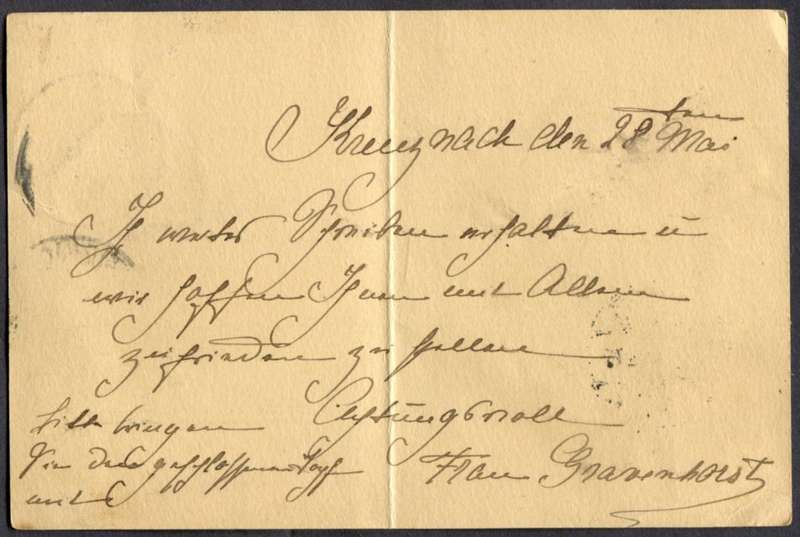 Kreuznach den 28ten Mai
Ihr wertes Schreiben erhalten u
wir hoffen Ihnen mit Allem
zufrieden zu stellen
Achtungsvoll
Frau Gravenhorst
bitte bringen
Sie den geschlossenen
mit